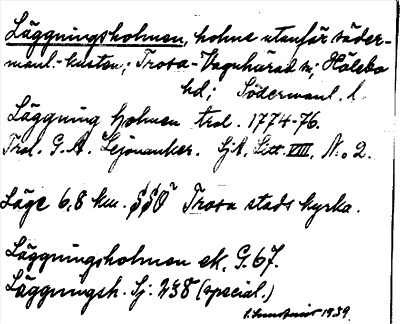 Läggningsholmen, holme utanför söder-
manl.-kusten; Trosa-Vagnhärad sn; Hölebo
hd; Södermanl. l.
Läggning holmen trol. 1774-76.
Trol. G. A. Lejonanker. Sjk. Litt. VIII. No 2.
Läge 6,8 km. SSO Trosa stads kyrka.
Läggningsholmen ek. G. 67.
Läggningsh. Sj: 238 (special.)
1939.